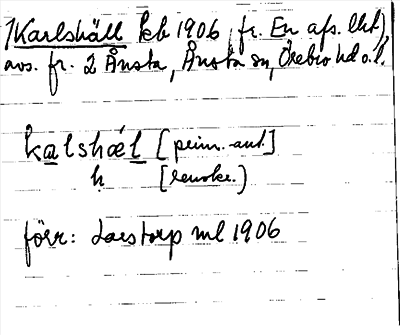 1 Karlshäll kb 1906, fr. En afs. lht),
avs. fr. 2 Ånsta, Ånsta sn, Örebro hd o. l.
kalshæ´l [prim. ant.]
h [senoker.)
förr: Larstorp ml 1906